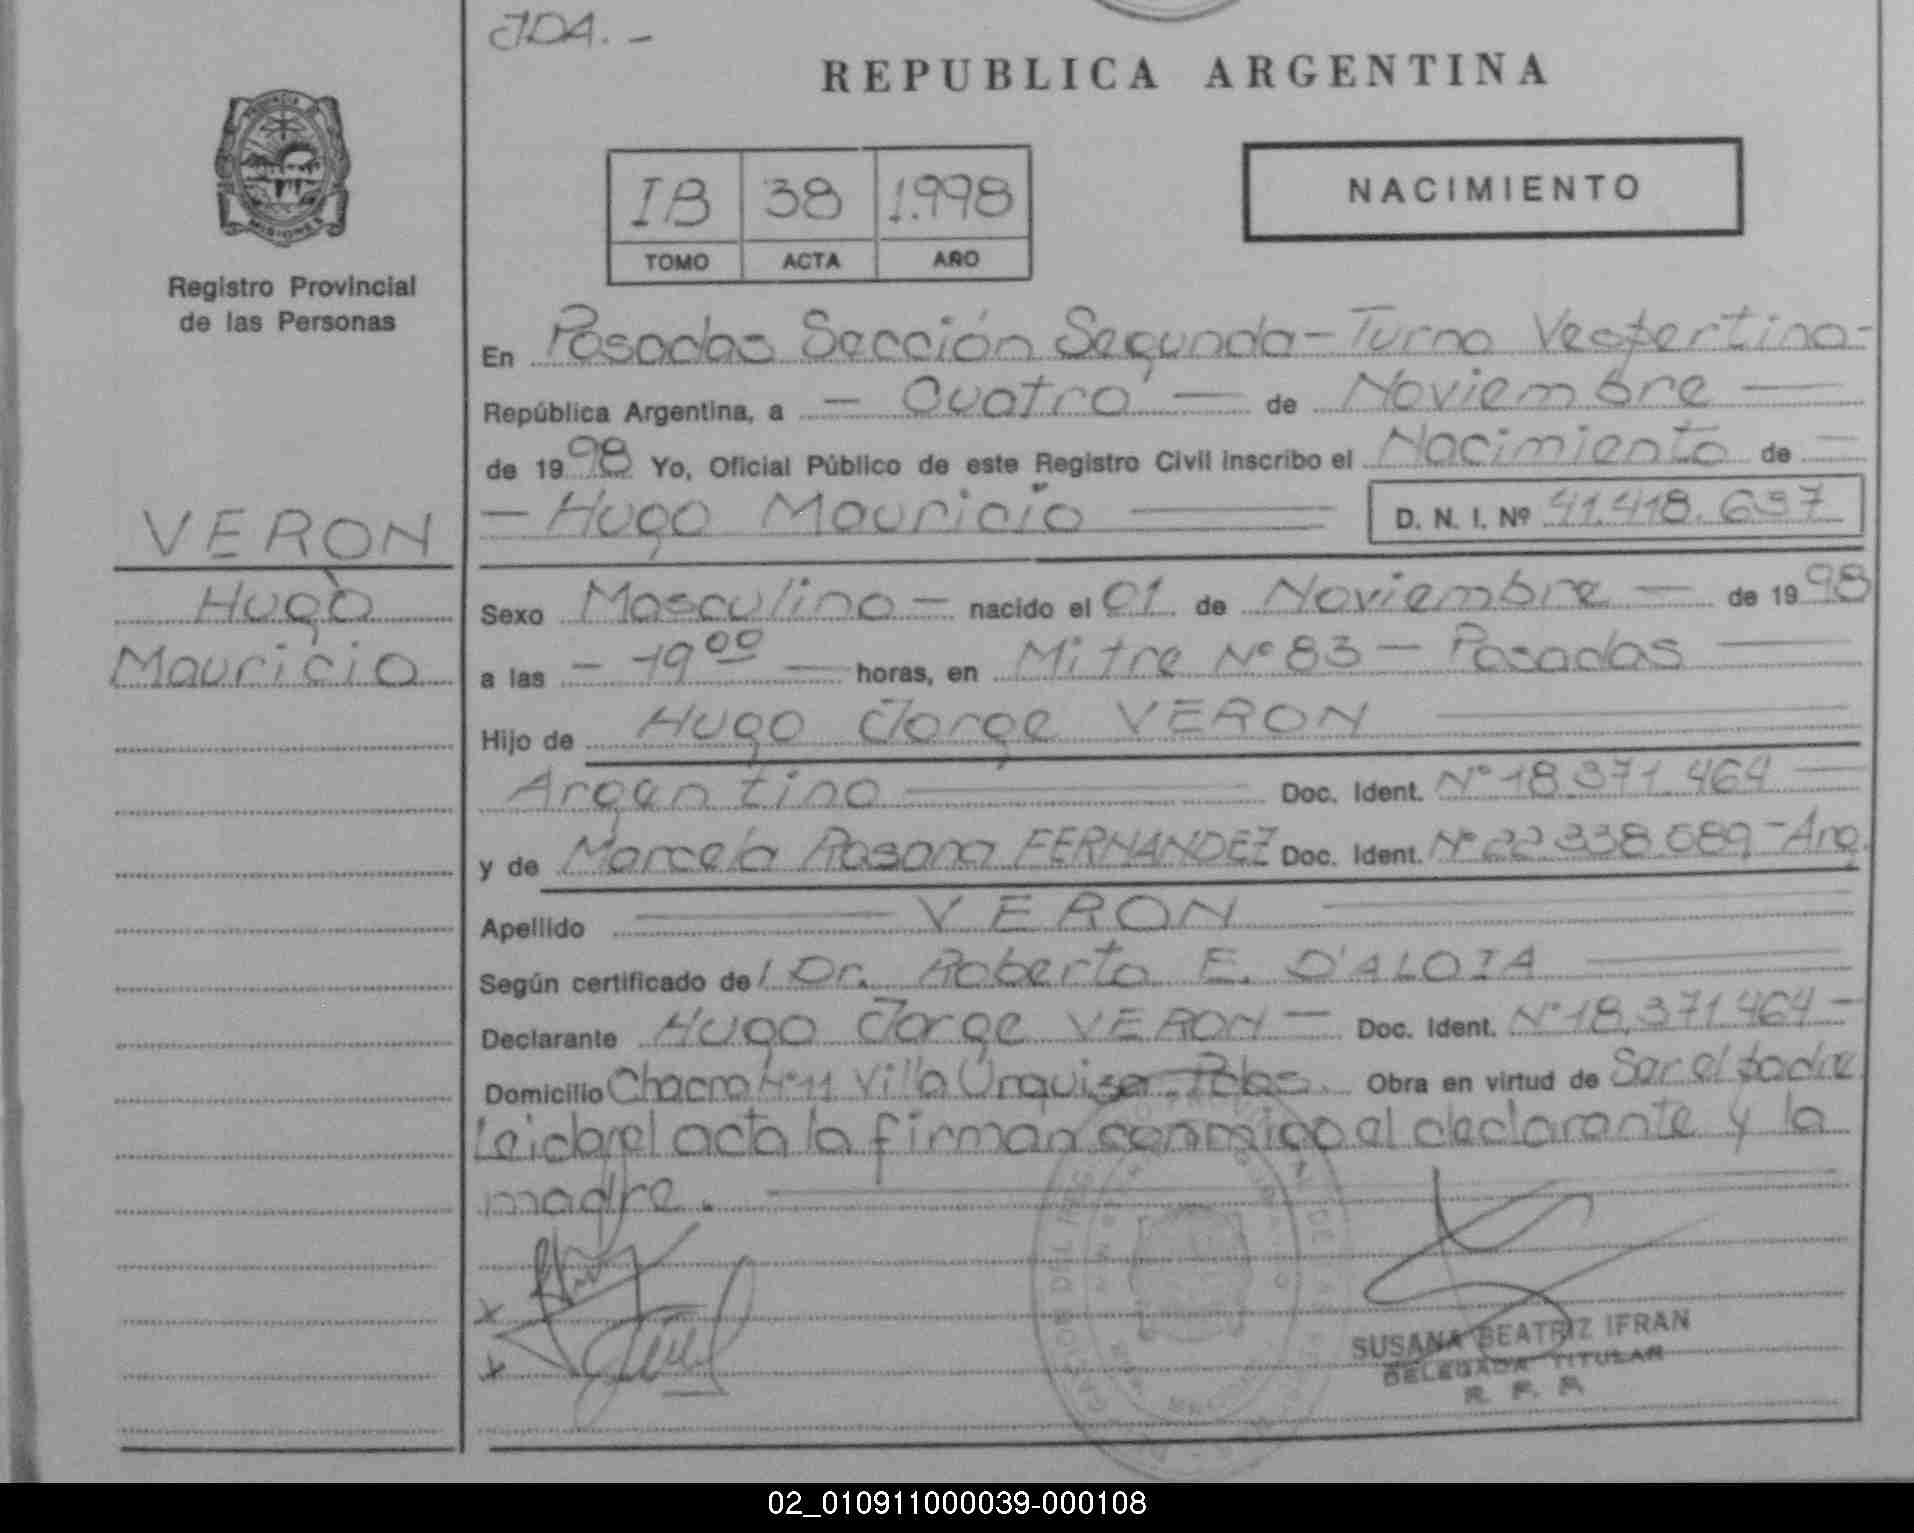 JDA.-
REPUBLICA ARGENTINA
MISIONES
Registro Provincial
de las Personas
IB 38 1.998
TOMO ACTA AÑO
NACIMIENTO
En Posadas Sección Segunda - Turno Vespertino -
República Argentina, a - Cuatro - de Noviembre
de 1998 Yo, Oficial Público de este Registro Civil inscribo el Nacimiento de
- Hugo Mauricio D. N. I. Nº 41.418.637
VERON
Hugo
Mauricio
Sexo Masculino - nacido el 01 de Noviembre - de 1998
a las - 19 00 - horas, en Mitre Nº 83 - Posadas
Hijo de Hugo Jorge VERON
Argentino Doc. Ident. Nº 18.371.464
y de Marcela Rosana FERNANDEZ Doc. Ident. Nº 22.338.089 - Arg.
Apellido VERON
Según certificado de/ Dr. Roberto E. D'ALOIA
Declarante Hugo Jorge VERON - Doc. Ident. Nº 18.371.464 -
Domicilio Chacra Nº 11 Villa Urquiza - Pdas. Obra en virtud de Ser el padre
Leida el acta la firman conmigo el declarante y la
madre.
SUSANA BEATRIZ IFRAN
DELEGADA TITULAR
R. P. P.
02_010911000039-000108